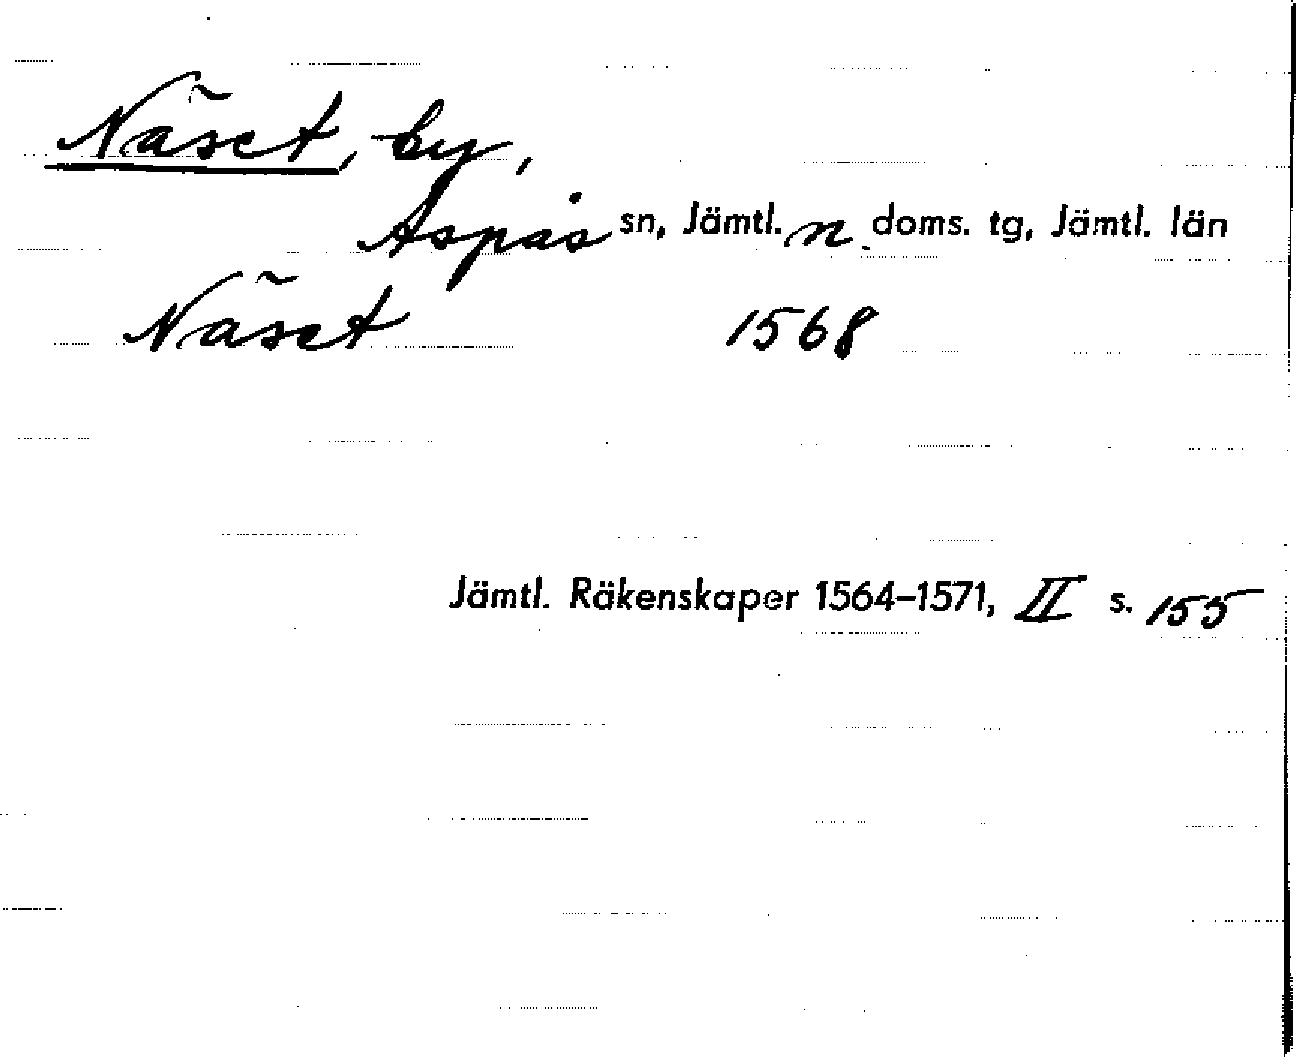 Näset, by,
Aspås sn, Jämtl. n doms. tg, Jämtl. län
Näset 1568
Jämtl. Räkenskaper 1564–1571, II s. 155